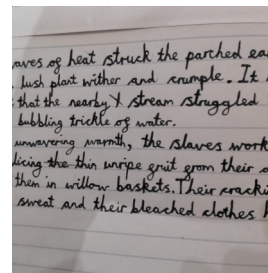 aves of heat struck the parched ea
lush plant wither and crumple. It
that the nearby stream struggled
bubbling trickle of water.
unwavering warmth, the slaves work
licing the thin unripe fruit from their
them in willow baskets. Their cracki
sweat and their bleached clothes